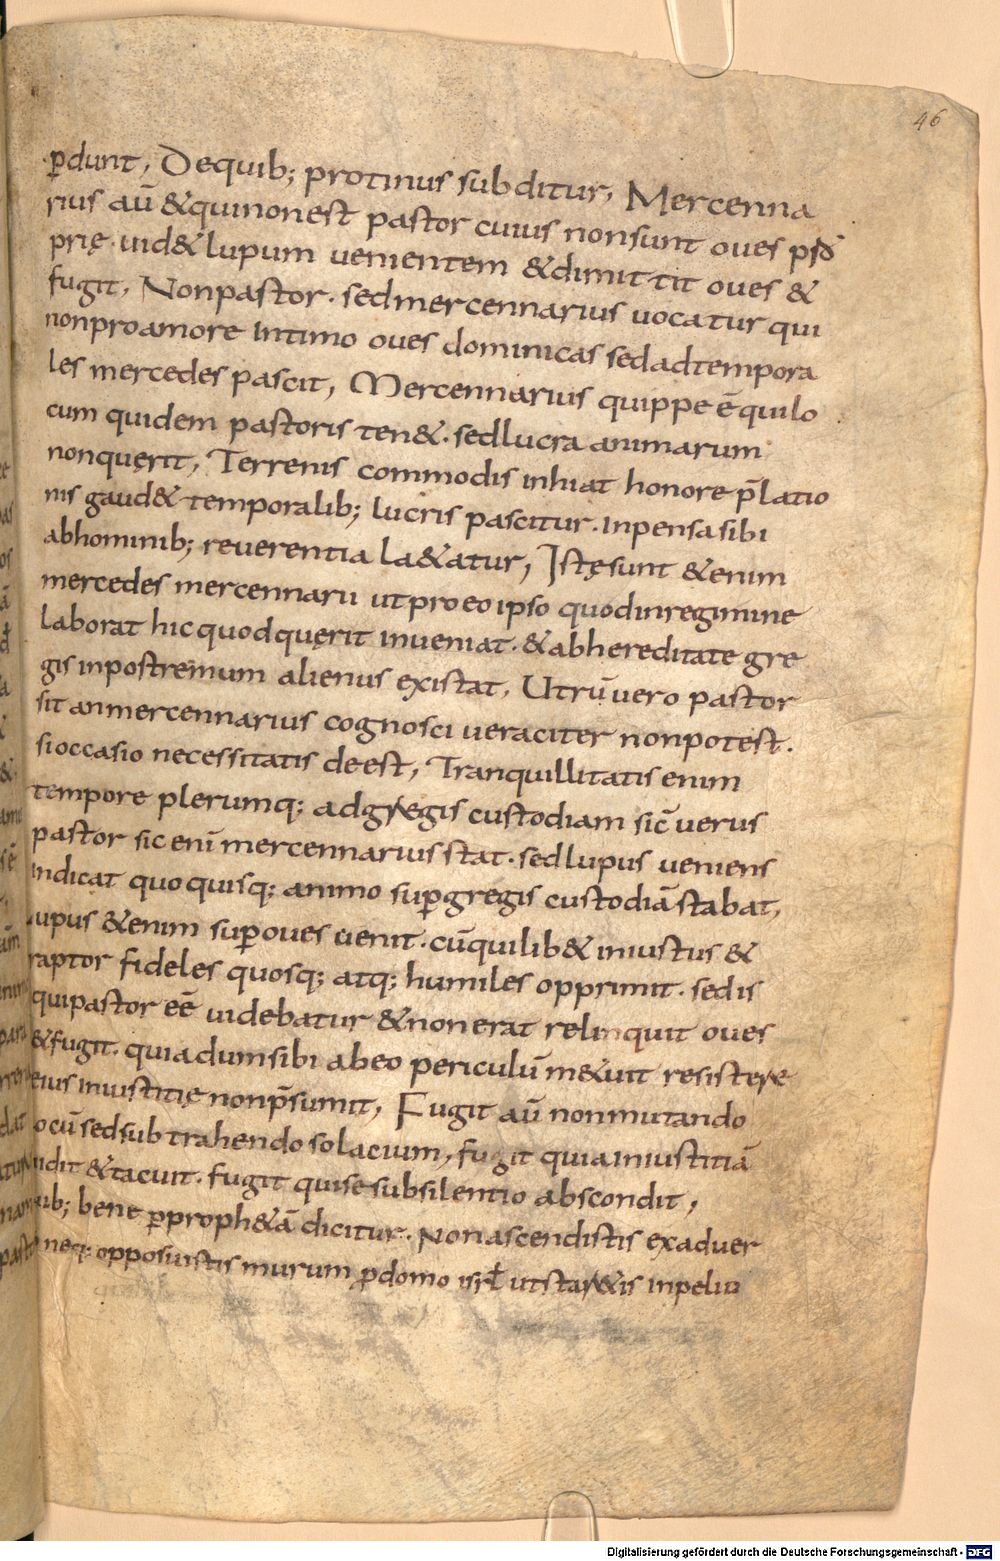 46
ꝑdunt, Dequib; protinus subditur, Mercenna
rius aū &quinonest pastor cuius nonsunt oues
prię. uid& lupum uenientem &dimittit oues &
fugit, Nonpastor. sedmercennarius uocatur qui
nonproamore intimo oues dominicas sedadtempora
les mercedes pascit, Mercennarius quippe ē quilo
cum quidem pastoris ten&. sedlucra animarum
nonquęrit, Terrenis commodis inhiat honore p̄latio
nis gaud& temporalib; lucris pascitur. inpensasibi
abhominib; reuerentia la&atur, Istęsunt &enim
mercedes mercennarii utproeoipso quodinregimine
laborat hicquodquęrit inueniat. &abhereditate gre
gis inpostremum alienus existat, Utrū uero pastor
sit anmercennarius cognosci ueraciter nonpotest.
sioccasio necessitatis deest, Tranquillitatis enim
tempore plerumq; adgregis custodiam sic̄ uerus
pastor sic enī mercennarius stat. sedlupus ueniens
indicat quoquisq; animo suꝑgregis custodiā stabat,
upus &enim suꝑoues uenit. cū quilib& iniustus &
raptor fideles quosq; atq; humiles opprimit. sedis
quipastor eē uidebatur &nonerat relinquit oues
&fugit. quiadumsibi abeo periculū m&uit resistere
eius iniustitię nonp̄sumit, Fugit aū nonmutando
ocū sedsubtrahendo solacium, fugit quiainiustitiā
uidit &tacuit. fugit quisesubsilentio abscondit,
uib; bene ꝑproph&ā dicitur. Nonascendistis exaduer
neq; opposuistis murum ꝓdomo isrł utstar&is inpeliu
Digitalisierung gefördert durch die Deutsche Forschungsgemeinschaft - DFG